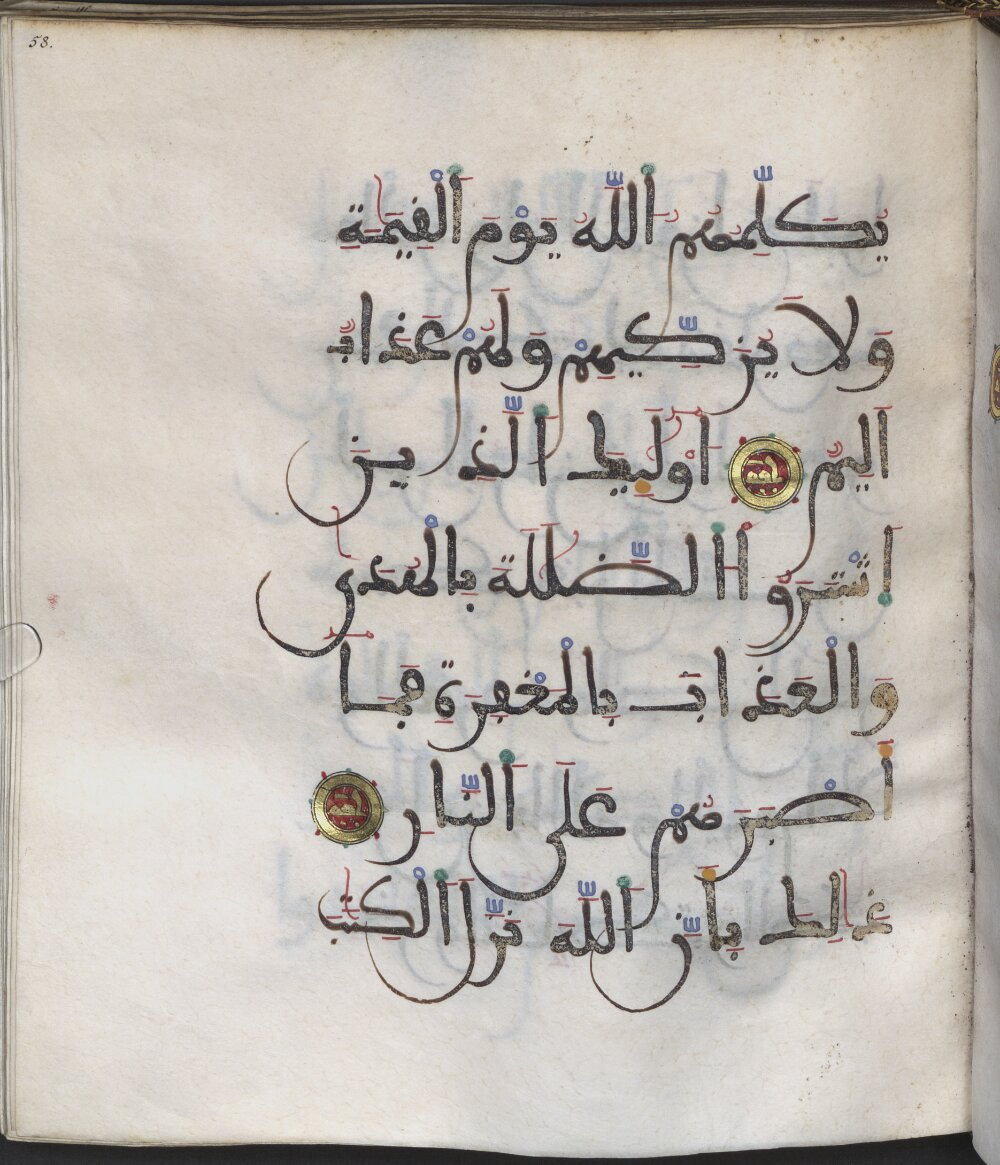 58.
يُكَلِّمُهُمُ اللَّهُ يَوْمَ الْقِيَٰمَةِ
وَلَا يُزَكِّيهِمْ وَلَهُمْ عَذَابٌ
اَلِيمٌ اُوْلَٰٓئِكَ الَّذِينَ
اَشْتَرَوُا الضَّلَٰلَةَ بِالْهُدَىٰ
وَالْعَذَابَ بِالْمَغْفِرَةِ فَمَآ
أَصْبَرَهُمْ عَلَى النَّارِ
ذَٰلِكَ بِأَنَّ اللَّهَ نَزَّلَ الْكِتَٰبَ